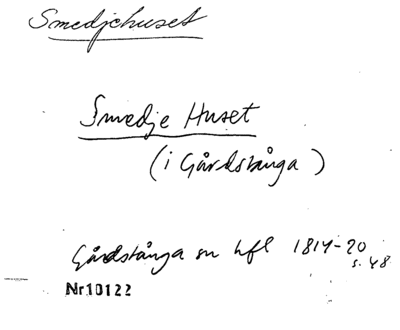 Smedjehuset
Smedje Huset
(i Gårdstånga)
Gårdstånga sn hfl 1814-20
s. 48
Nr10122